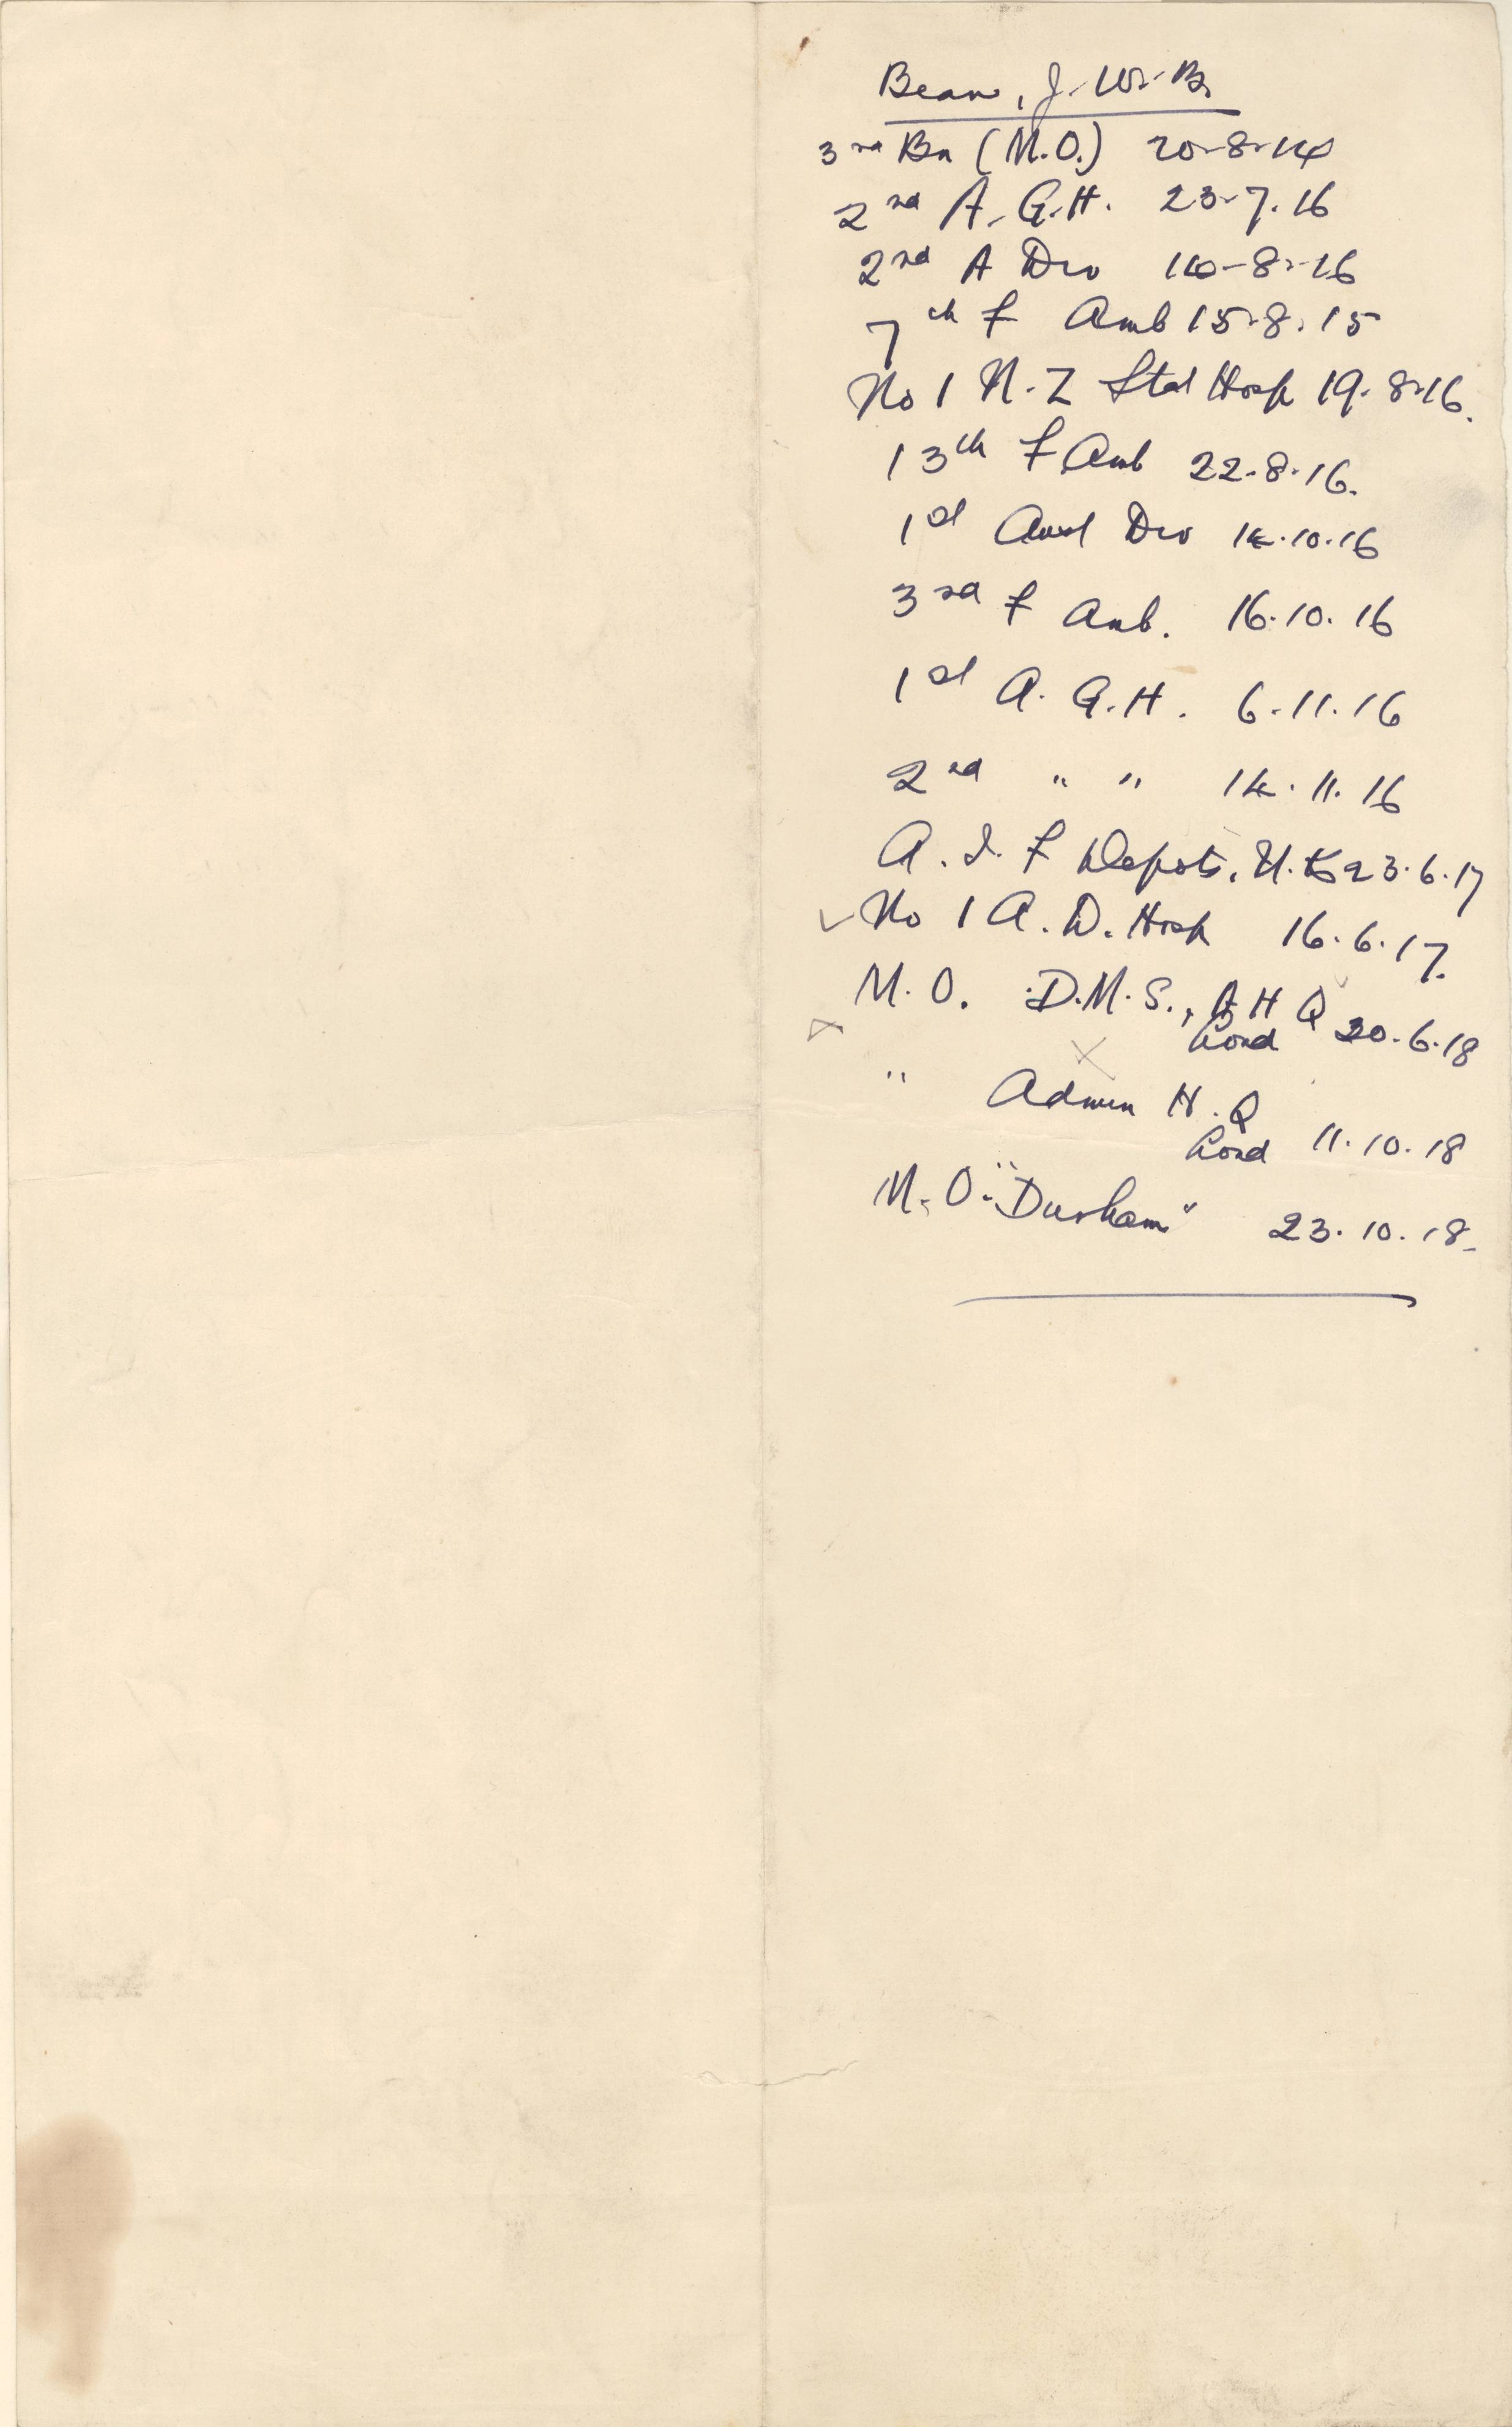 Bean, J. W. B.
3rd Bn (M.O.) 20-8-14
2nd A. G. H. 23-7-16
2nd A Div 14-8-16
7th F Amb 15-8-15
No 1 N. Z Stat Hosp 19-8-16.
13th F Amb 22-8-16.
1st Aust Div 14.10.16
3rd F Amb. 16.10.16
1st A. G. H. 6.11.16
2nd " " 14.11.16
A. I. F Depots, U.K 23.6.17
No 1 A. D. Hosp 16.6.17.
M. O. D.M.S., A H Q
Lond 20.6.18
" Admin H. Q
Lond 11.10.18
M. O. "Durham" 23.10.18